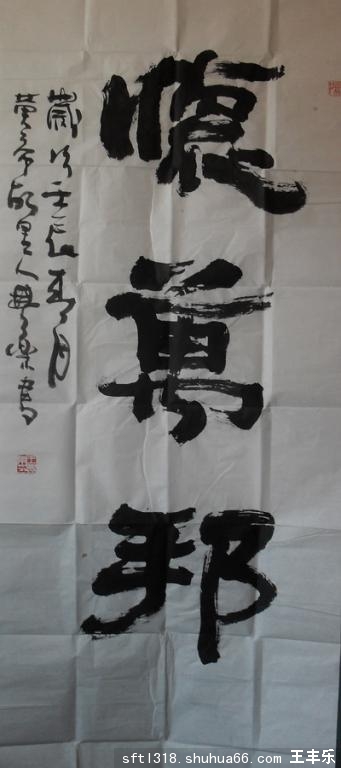 懷萬邦
歲次壬辰春月
黄帝故里人豐樂書
sftl318.shuhua66.com 王丰乐